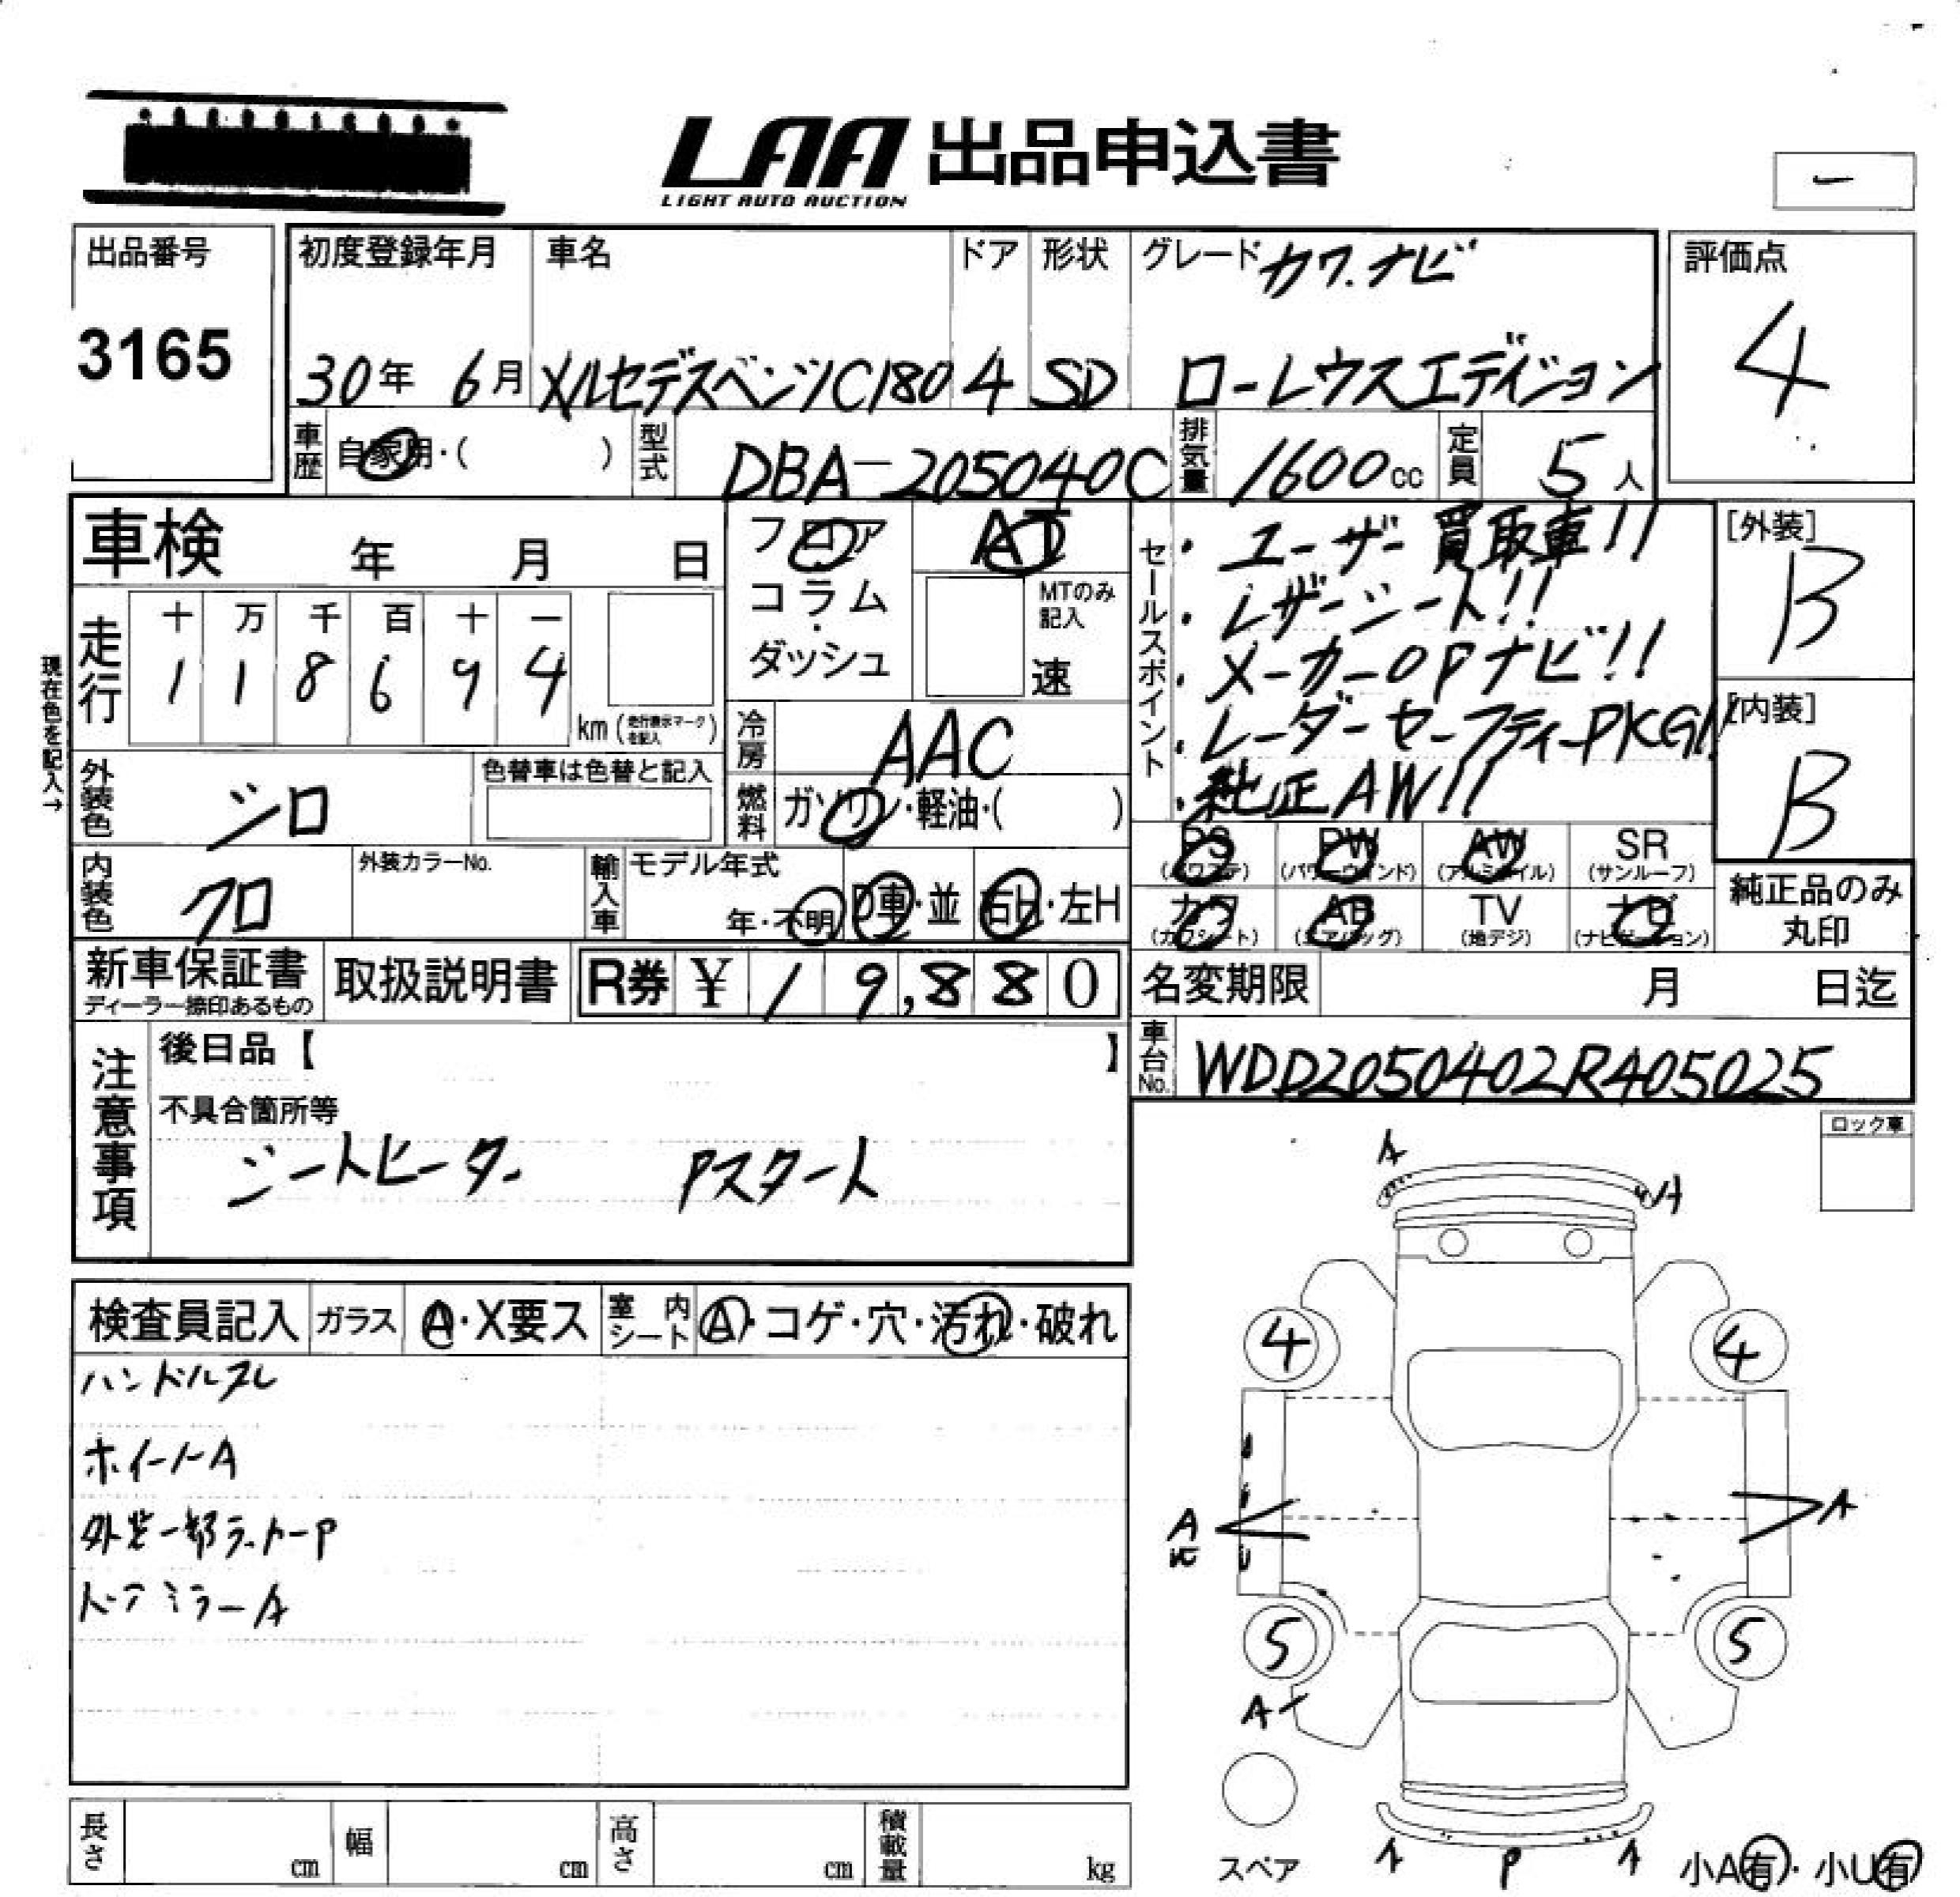 LAA 出品申込書
LIGHT AUTO AUCTION
出品番号
3165
初度登録年月
30年 6月
車名
メルセデスベンツC180
ドア
4
形状
SD
グレード カワ.ナビ
ローレウスエディション
評価点
4
車歴 自家用・( )
型式 DBA-205040C
排気量 1600cc
定員 5人
車検 年 月 日
フロア
コラム
・
ダッシュ
AT
MTのみ
記入
速
セールスポイント
・ユーザー買取車!!
・レザーシート!!
・メーカーOPナビ!!
・レーダーセーフティーPKG!!
・純正AW!!
[外装]
B
[内装]
B
現在色を記入→
走行
十 万 千 百 十 一
1 1 8 6 9 4
km (走行表示マークを記入)
冷房 AAC
外装色 シロ
色替車は色替と記入
燃料 ガソリン・軽油・( )
内装色 クロ
外装カラーNo.
輸入車 モデル年式
年・不明
D車・並
右H・左H
PS (パワステ)
PW (パワーウインド)
AW (アルミホイル)
SR (サンルーフ)
カワ (カワシート)
AB (エアバッグ)
TV (地デジ)
ナビ (ナビゲーション)
純正品のみ
丸印
新車保証書
ディーラー捺印あるもの
取扱説明書
R券 ¥ 19,880
名変期限 月 日迄
車台No. WDD2050402R405025
注意事項
後日品【 】
不具合箇所等
シートヒーター Pスタート
ロック車
検査員記入
ガラス A・X要ス
室内シート A・コゲ・穴・汚れ・破れ
ハンドルスレ
ホイールA
外装一部ラッカーP
ドアミラーA
A
A
4
4
A
A
5
5
A
スペア
A P A
小A有・小U有
長さ cm
幅 cm
高さ cm
積載量 kg